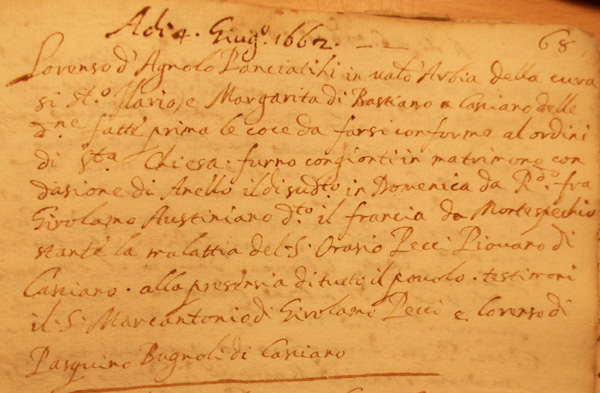 Adi 4. Giug.o 1662.
68
Lorenso d'Agnolo Panciatihi in vald'Arbia della cura
si St.o Ilario, e Margarita di Bastiano a Casciano delle
d.ne fatte prima le coce da farsi conforme al ordini
di S.ta Chiesa. furno congionti in matrimono con
dasione di Anello il di sud.to in Domenica da R.do fra
Girolamo Austiniano d.to il francia da Montespechio
stante la malattia del. S. Orasio Pecci Piovano di
Casciano. alla presensia di tutti il povolo. testimoni
il. S. Marcantonio di Girolamo Pecci e Lorenso di
Pasquino Bugnoli di Casciano